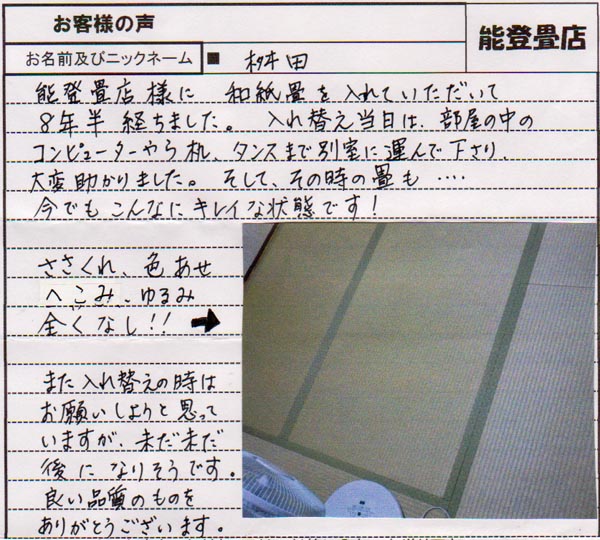 お客様の声
能登畳店
お名前及びニックネーム ■ 桝田
能登畳店様に 和紙畳を入れていただいて
8年半経ちました。 入れ替え当日は、部屋の中の
コンピューターやら机、タンスまで別室に運んで下さり、
大変助かりました。そして、その時の畳も ‥‥
今でもこんなにキレイな状態です!
ささくれ、色あせ
へこみ、ゆるみ
全くなし!! →
また入れ替えの時は
お願いしようと思って
いますが、まだまだ
後になりそうです。
良い品質のものを
ありがとうございます。